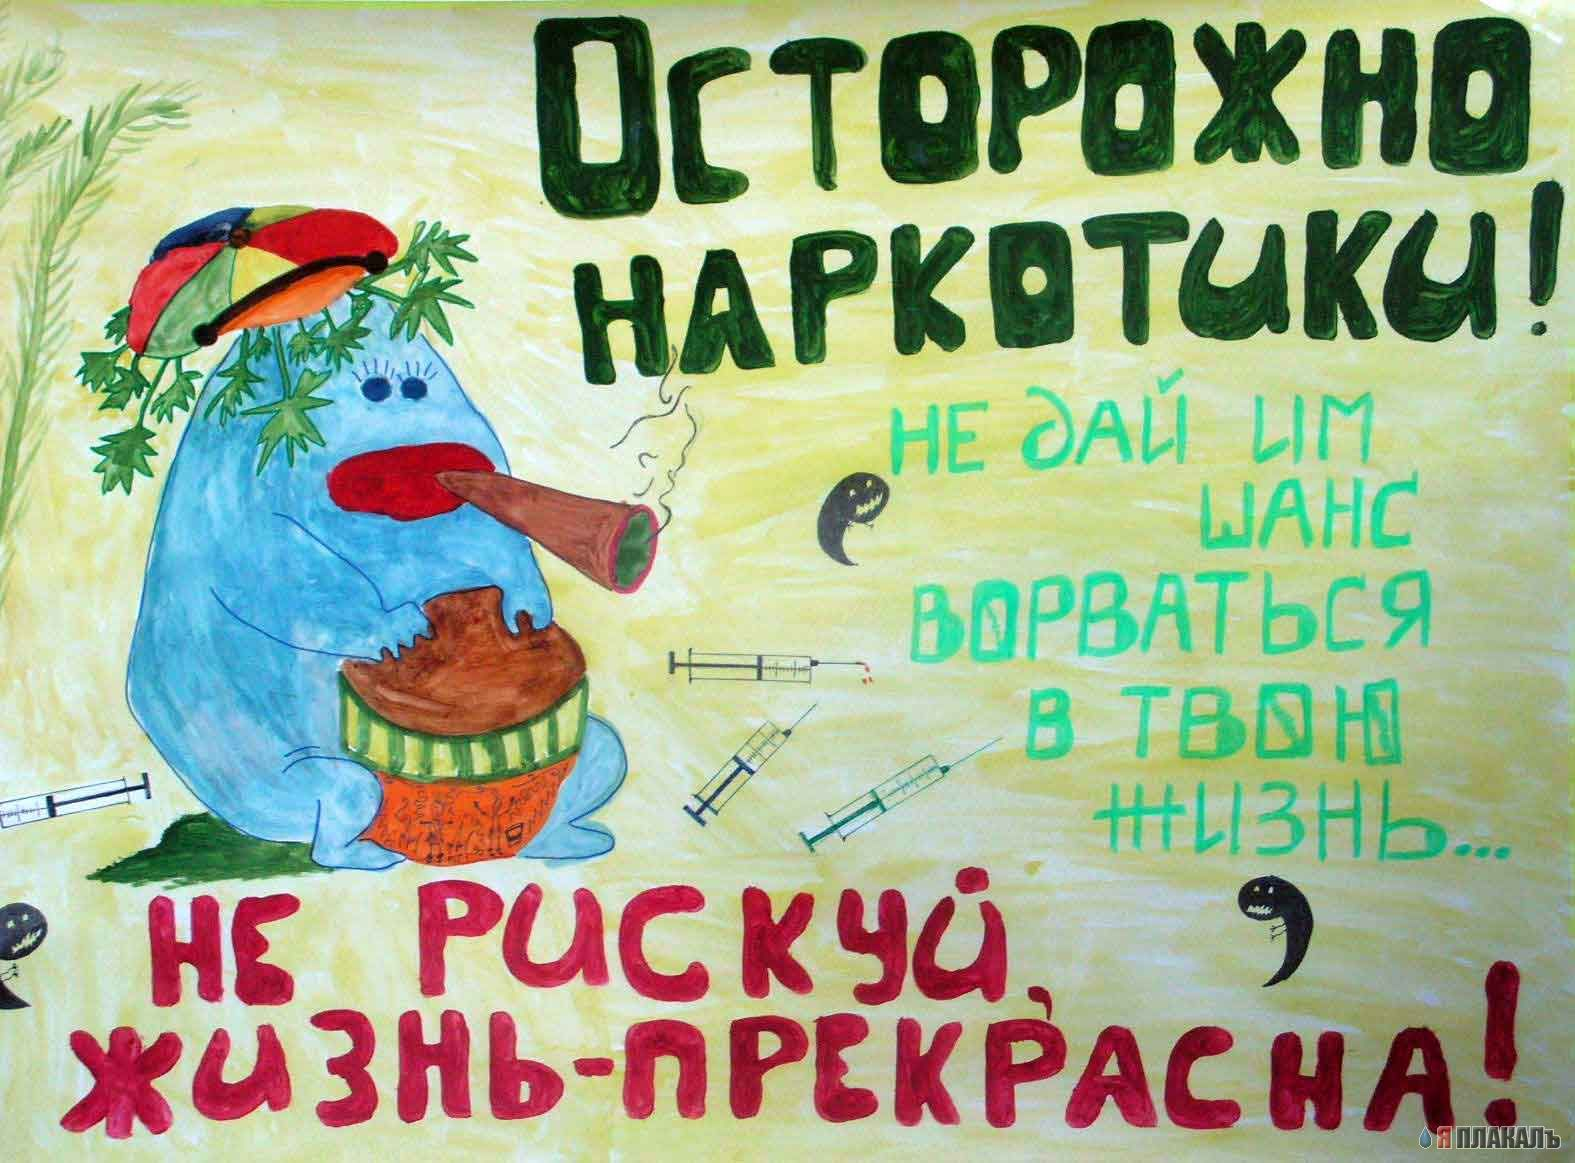 ОСТОРОЖНО
НАРКОТИКИ!
НЕ ДАЙ ИМ
ШАНС
ВОРВАТЬСЯ
В ТВОЮ
ЖИЗНЬ...
НЕ РИСКУЙ,
ЖИЗНЬ-ПРЕКРАСНА!
Я ПЛАКАЛЪ